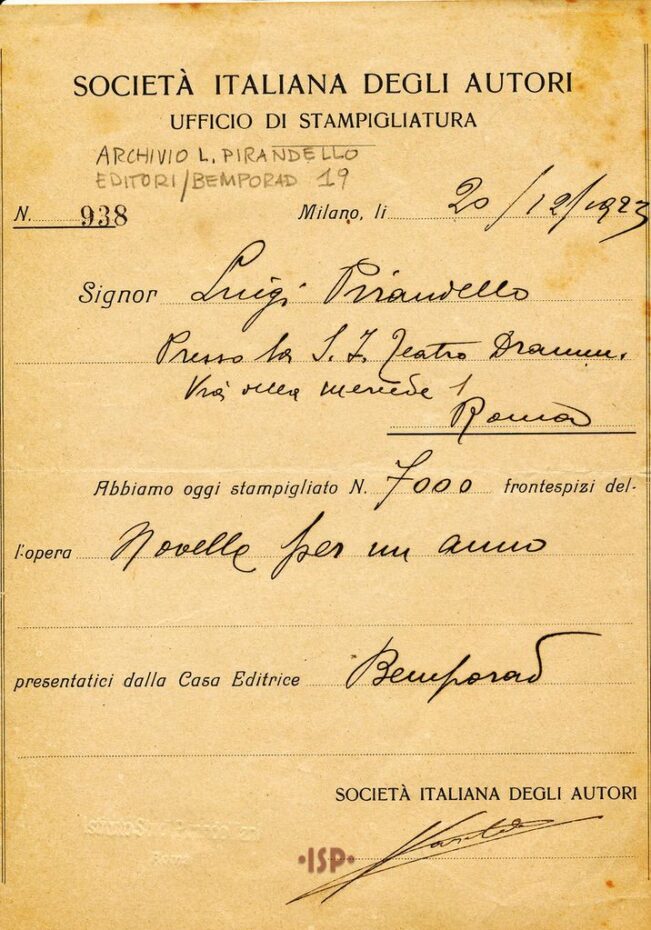 SOCIETÀ ITALIANA DEGLI AUTORI
UFFICIO DI STAMPIGLIATURA
ARCHIVIO L. PIRANDELLO
EDITORI/BEMPORAD 19
N. 938 Milano, li 20/12/1923
Signor Luigi Pirandello
Presso la S. I. Teatro Dramm.
Via della mercede 1
Roma
Abbiamo oggi stampigliato N. 7000 frontespizi del-
l'opera Novelle per un anno
presentatici dalla Casa Editrice Bemporad
SOCIETÀ ITALIANA DEGLI AUTORI
·ISP·